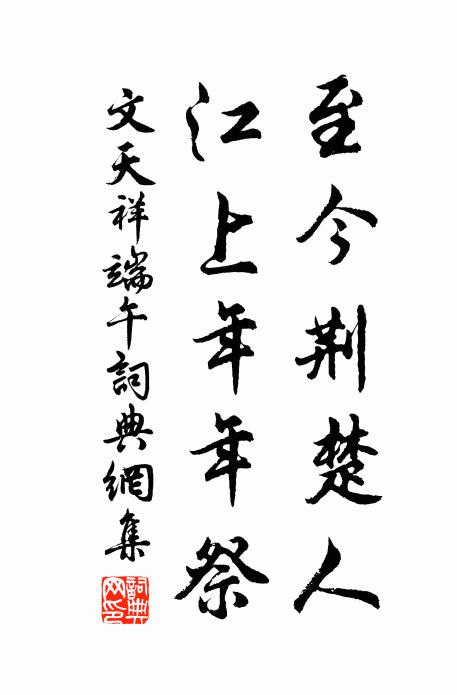 至今荆楚人
江上年年祭
文天祥端午詞典網集
詞典網印